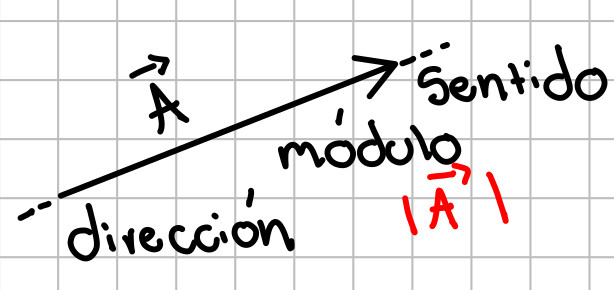 A⃗
Sentido
módulo
|A⃗|
dirección